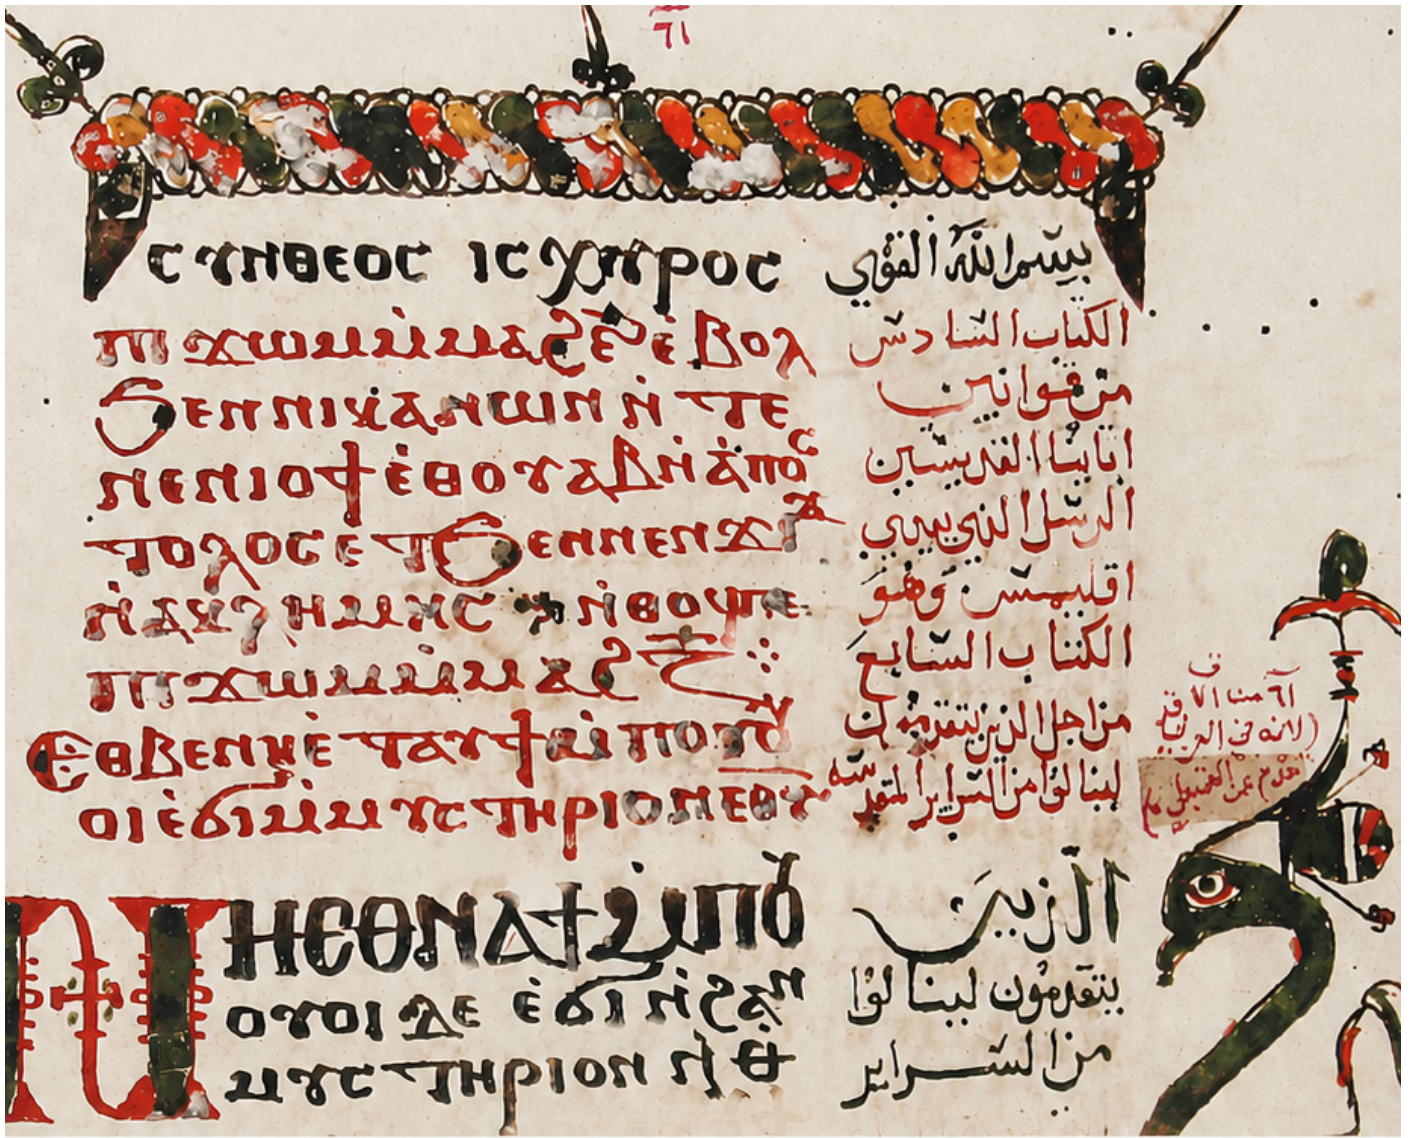 ⲥⲩⲛⲑⲉⲟⲥ ⲓⲥⲭⲩⲣⲟⲥ
ⲡⲓϫⲱⲙ ⲙ̀ⲙⲁϩ ⲉ̀ⲃⲟⲗ
ϧⲉⲛ ⲛⲓⲕⲁⲛⲱⲛ ⲛ̀ⲧⲉ
ⲛⲉⲛⲓⲟϯ ⲉ̀ⲑⲟⲩⲁⲃ ⲛ̀ⲁ̀ⲡⲟⲥ
ⲧⲟⲗⲟⲥ ⲉⲧϧⲉⲛ ⲛⲉⲛϫⲓϫ
ⲛ̀ⲁⲕⲗⲏⲙⲏⲥ ⲛ̀ⲑⲟϥ ⲡⲉ
ⲡⲓϫⲱⲙ ⲙ̀ⲙⲁϩ ⲍ̅
Ⲉⲑⲃⲉ ⲛⲏⲉ̀ⲧⲁⲩϯⲙ̀ⲡⲟⲩⲟ
ⲟⲓ ⲉ̀ϭⲓ ⲙ̀ⲙⲩⲥⲧⲏⲣⲓⲟⲛ ⲉⲑⲩ
ⲚⲎⲈⲐⲚⲀϮⲘ̀ⲠⲞⲨ
ⲟⲩⲟⲓ ⲇⲉ ⲉ̀ϭⲓ ⲛ̀ϩⲁⲛ
ⲙⲩⲥⲧⲏⲣⲓⲟⲛ
بسم الله القوي
الكتاب السادس
من قوانين
ابايا القديسين
الرسل الذي بيدي
اقليمس وهو
الكتاب السابع
من اجل الذين يتقدمون
لينالوا من السراير المقدسه
الذين
يتقدمون لينالوا
من السراير